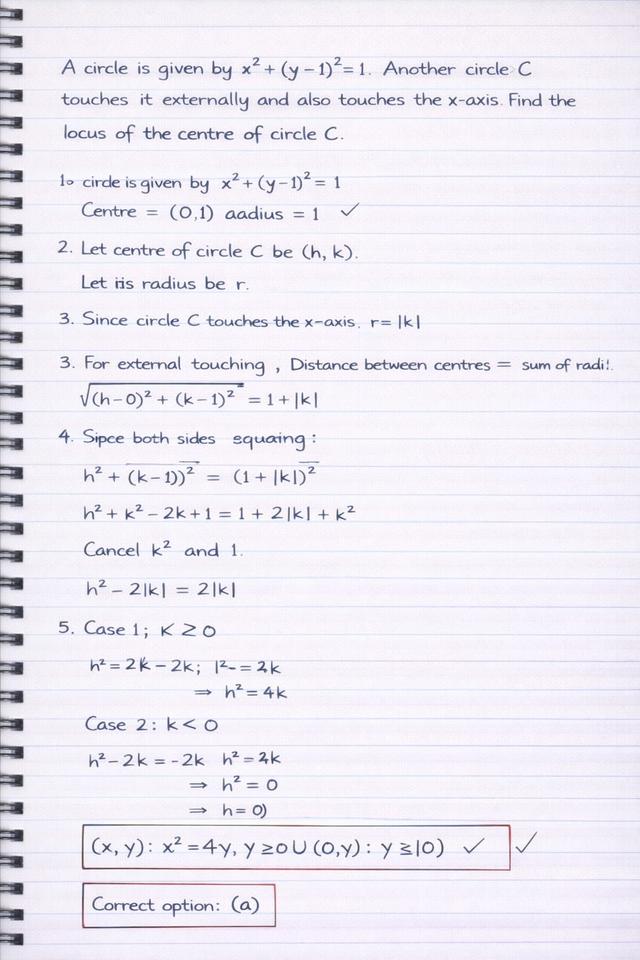 A circle is given by x² + (y – 1)² = 1. Another circle C
touches it externally and also touches the x-axis. Find the
locus of the centre of circle C.
1. cirde is given by x² + (y – 1)² = 1
Centre = (0,1) aadius = 1 ✓
2. Let centre of circle C be (h, k).
Let its radius be r.
3. Since circle C touches the x-axis. r = |k|
3. For external touching , Distance between centres = sum of radi!.
√(h – 0)² + (k – 1)² = 1 + |k|
4. Sipce both sides equaing :
h² + (k – 1))² = (1 + |k|)²
h² + k² – 2k + 1 = 1 + 2|k| + k²
Cancel k² and 1.
h² – 2|k| = 2|k|
5. Case 1; K ≥ 0
h² = 2k – 2k; |²- = 2k
⇒ h² = 4k
Case 2: k < 0
h² – 2k = –2k h² = 2k
⇒ h² = 0
⇒ h = 0)
(x, y): x² = 4y, y ≥ 0 ∪ (0,y) : y ≤ |0) ✓ ✓
Correct option: (a)